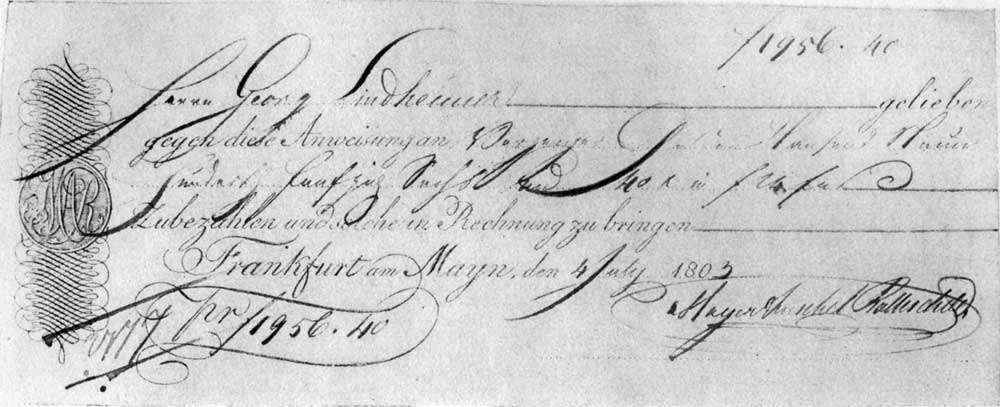 f 1956. 40
Herrn Georg Lindheimer geliebe
gegen diese Anweisung an Tausend Neun
Hundert Funfzig Sechs und 40 x in f 24 fus
Zubezahlen und solche in Rechnung zu bringen
Frankfurt am Mayn, den 4 July 1803
MAR
Mayer Amschel Rothschild
pr f 1956. 40